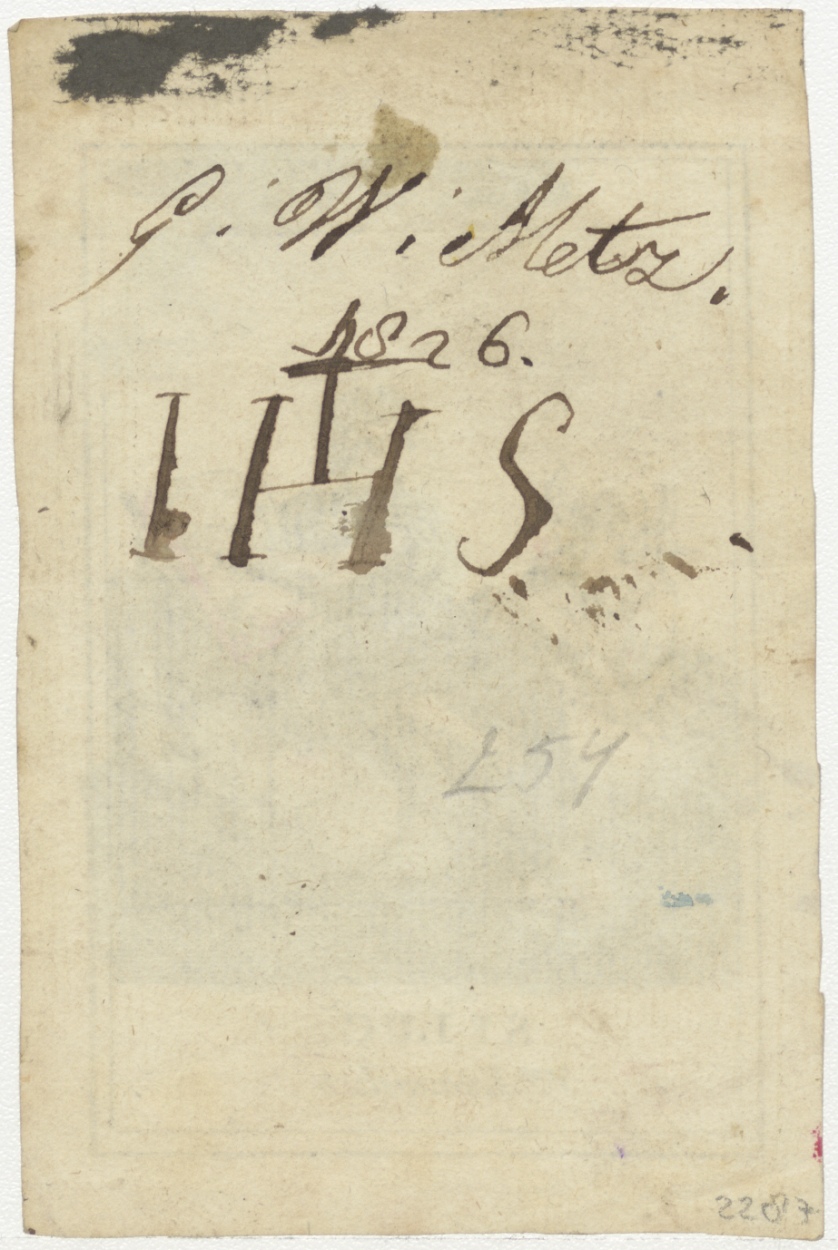 G. W. Metz.
1826.
IHS
254
2287